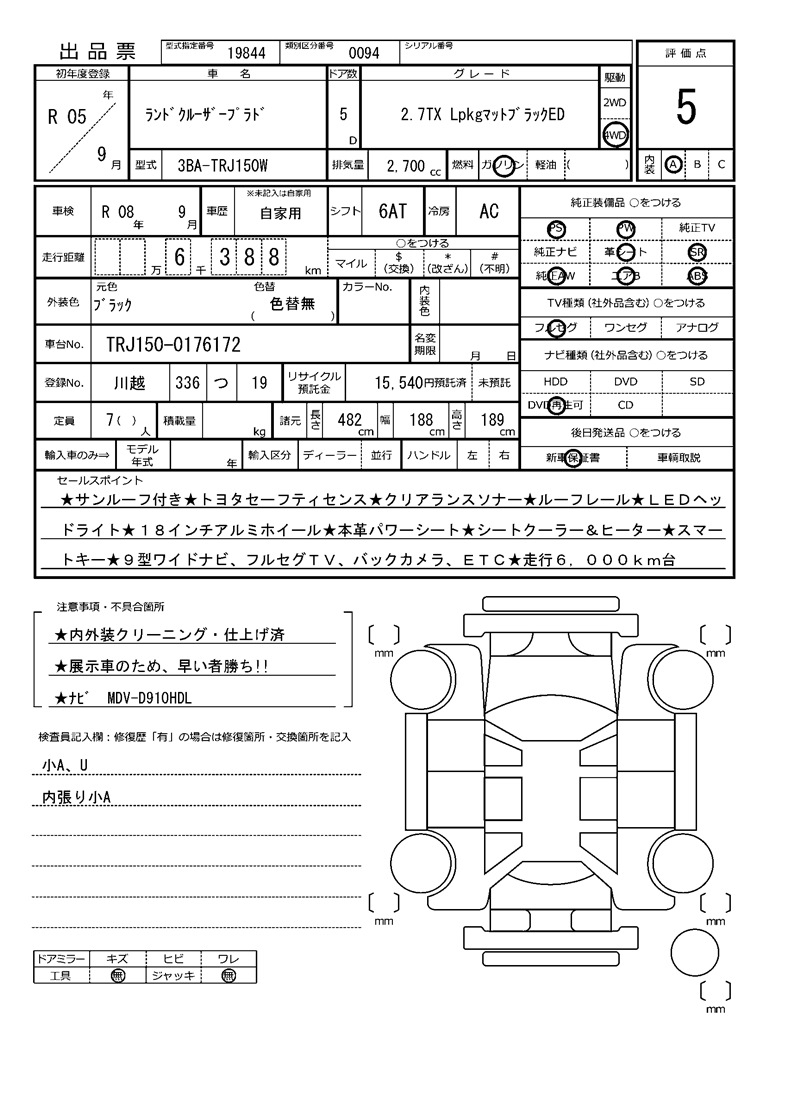 出品票 型式指定番号 19844 類別区分番号 0094 シリアル番号
評価点
初年度登録 車 名 ドア数 グレード 駆動
R 05 年 9 月
ﾗﾝﾄﾞｸﾙｰｻﾞｰﾌﾟﾗﾄﾞ 5 D 2.7TX LpkgﾏｯﾄﾌﾞﾗｯｸED 2WD 4WD
5
型式 3BA-TRJ150W 排気量 2,700 cc 燃料 ガソリン 軽油 ( )
内装 A B C
車検 R 08 年 9 月 車歴 ※未記入は自家用 自家用 シフト 6AT 冷房 AC
走行距離 万 6 千 3 8 8 km
○をつける
マイル $(交換) *(改ざん) #(不明)
外装色 元色 ﾌﾞﾗｯｸ 色替 色替無 ( ) カラーNo. 内装色
車台No. TRJ150-0176172 名変期限 月 日
登録No. 川越 336 つ 19 リサイクル預託金 15,540円預託済 未預託
定員 7( ) 人 積載量 kg 諸元 長さ 482 cm 幅 188 cm 高さ 189 cm
輸入車のみ⇒ モデル年式 年 輸入区分 ディーラー 並行 ハンドル 左 右
純正装備品 ○をつける
PS PW 純正TV
純正ナビ 革シート SR
純正AW エアB ABS
TV種類(社外品含む) ○をつける
フルセグ ワンセグ アナログ
ナビ種類(社外品含む) ○をつける
HDD DVD SD
DVD再生可 CD
後日発送品 ○をつける
新車保証書 車輌取説
セールスポイント
★サンルーフ付き★トヨタセーフティセンス★クリアランスソナー★ルーフレール★ＬＥＤヘッ
ドライト★１８インチアルミホイール★本革パワーシート★シートクーラー＆ヒーター★スマー
トキー★９型ワイドナビ、フルセグＴＶ、バックカメラ、ＥＴＣ★走行６，０００ｋｍ台
注意事項・不具合箇所
★内外装クリーニング・仕上げ済
★展示車のため、早い者勝ち!!
★ﾅﾋﾞ MDV-D910HDL
検査員記入欄：修復歴「有」の場合は修復箇所・交換箇所を記入
小A、U
内張り小A
mm
mm
mm
mm
mm
ドアミラー キズ ヒビ ワレ
工具 無 ジャッキ 無